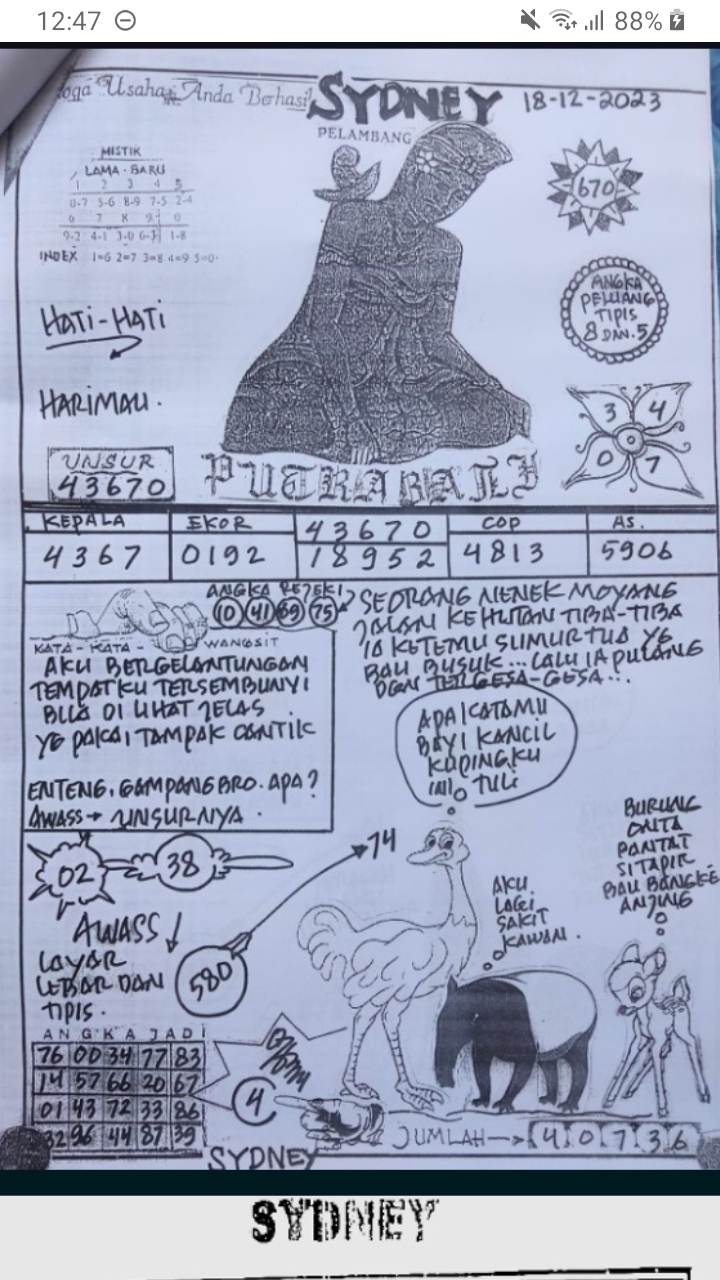 12:47
88%
Usaha Anda Berhasil
SYDNEY
18-12-2023
PELAMBANG
MISTIK
LAMA - BARU
1 2 3 4 5
0-7 5-6 8-9 7-5 2-4
6 7 8 9 0
9-2 4-1 3-0 6-3 1-8
INDEX 1=6 2=7 3=8 4=9 5=0
670
ANGKA
PELUANG
TIPIS
8 DAN 5
HATI-HATI
HARIMAU.
3 4
0 7
UNSUR
43670
PUTRA BALI
KEPALA
4367
EKOR
0192
43670
18952
COP
4813
AS.
5906
ANGKA REJEKI
10 41 69 75
KATA - KATA - WANGSIT
AKU BERGELANTUNGAN
TEMPATKU TERSEMBUNYI
BILA DI LIHAT JELAS
YG PAKAI TAMPAK CANTIK
ENTENG, GAMPANG BRO. APA?
AWASS → UNSURNYA.
SEORANG NENEK MOYANG
JALAN KEHUTAN TIBA-TIBA
IA KETEMU SUMUR TUA YG
BAU BUSUK... LALU IA PULANG
DGN TERGESA-GESA...
APA KATAMU
BAYI KANCIL
KUPINGKU
INI TULI
BURUNG
ONTA
PANTAT
SI TAPIR
BAU BANGKE
ANJING
AKU
LAGI
SAKIT
KAWAN.
02
38
74
580
AWASS
LAYAR
LEBAR DAN
TIPIS.
ANGKA JADI
76 00 34 77 83
14 57 66 20 67
01 43 72 33 86
32 96 44 87 39
4
JUMLAH → 4 0 7 3 6
SYDNEY
SYDNEY